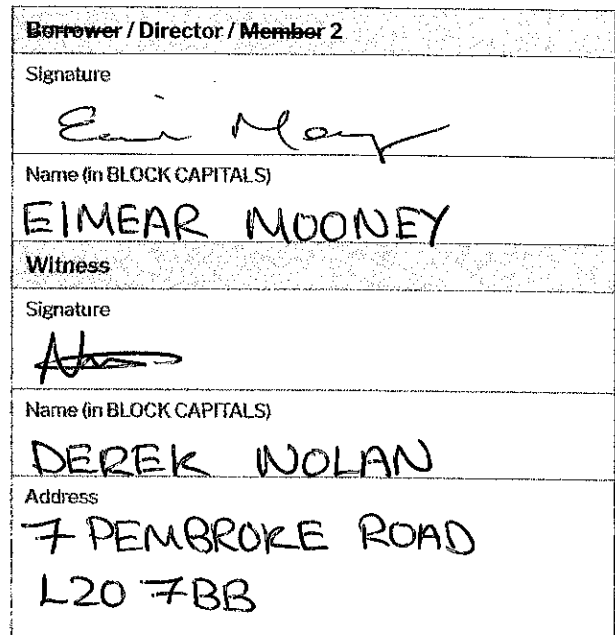 Borrower / Director / Member 2
Signature
Name (in BLOCK CAPITALS)
EIMEAR MOONEY
Witness
Signature
Name (in BLOCK CAPITALS)
DEREK NOLAN
Address
7 PEMBROKE ROAD
L20 7BB